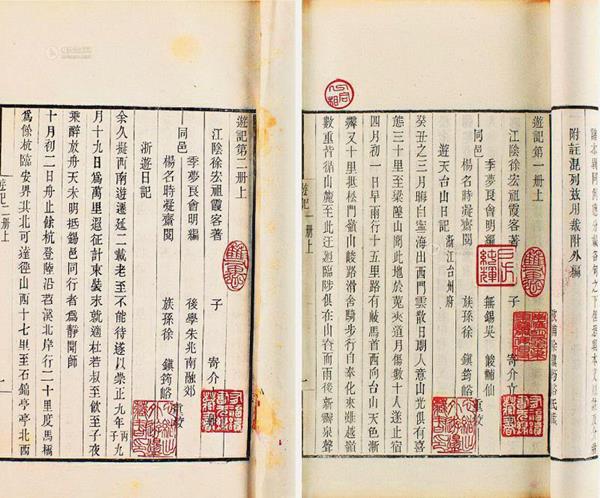 附註混列效用裁附外編
遊記第一冊上
江陰徐宏祖霞客著 子 寄介立
季夢良會明編 無錫吳 峻輔仙
同邑
楊名時凝齋閱 族孫徐 鎮筠峪 重校
遊天台山日記 浙江台州府
癸丑之三月晦自寧海出西門雲散日朗人意山光俱有喜
態三十里至梁隍山聞此地於菟夾道月傷數十人遂止宿
四月初一日早雨行十五里路有岐馬首西向台山天色漸
霽又十里抵松門嶺山峻路滑舍騎步行自奉化來雖越嶺
數重皆循山麓至此迂迴臨陟俱在山脊而雨後新霽泉聲
遊記一冊上
遊記第二冊上
江陰徐宏祖霞客著 子 寄介立
季夢良會明編 後學朱兆南融郊
同邑
楊名時凝齋閱 族孫徐 鎮筠峪 重校
浙遊日記
余久擬西南遊遷延二載老至不能待遂以崇正九年丙子九
月十九日為萬里遐征計束裝未就適杜若叔至飲至子夜
乘醉放舟天未明抵錫邑同行者為靜聞師
十月初二日舟止餘杭登陸沿苕溪北岸行二十里度馬橋
為餘杭臨安界其北可達徑山西十七里至石鏡亭亭北西
遊記二冊上